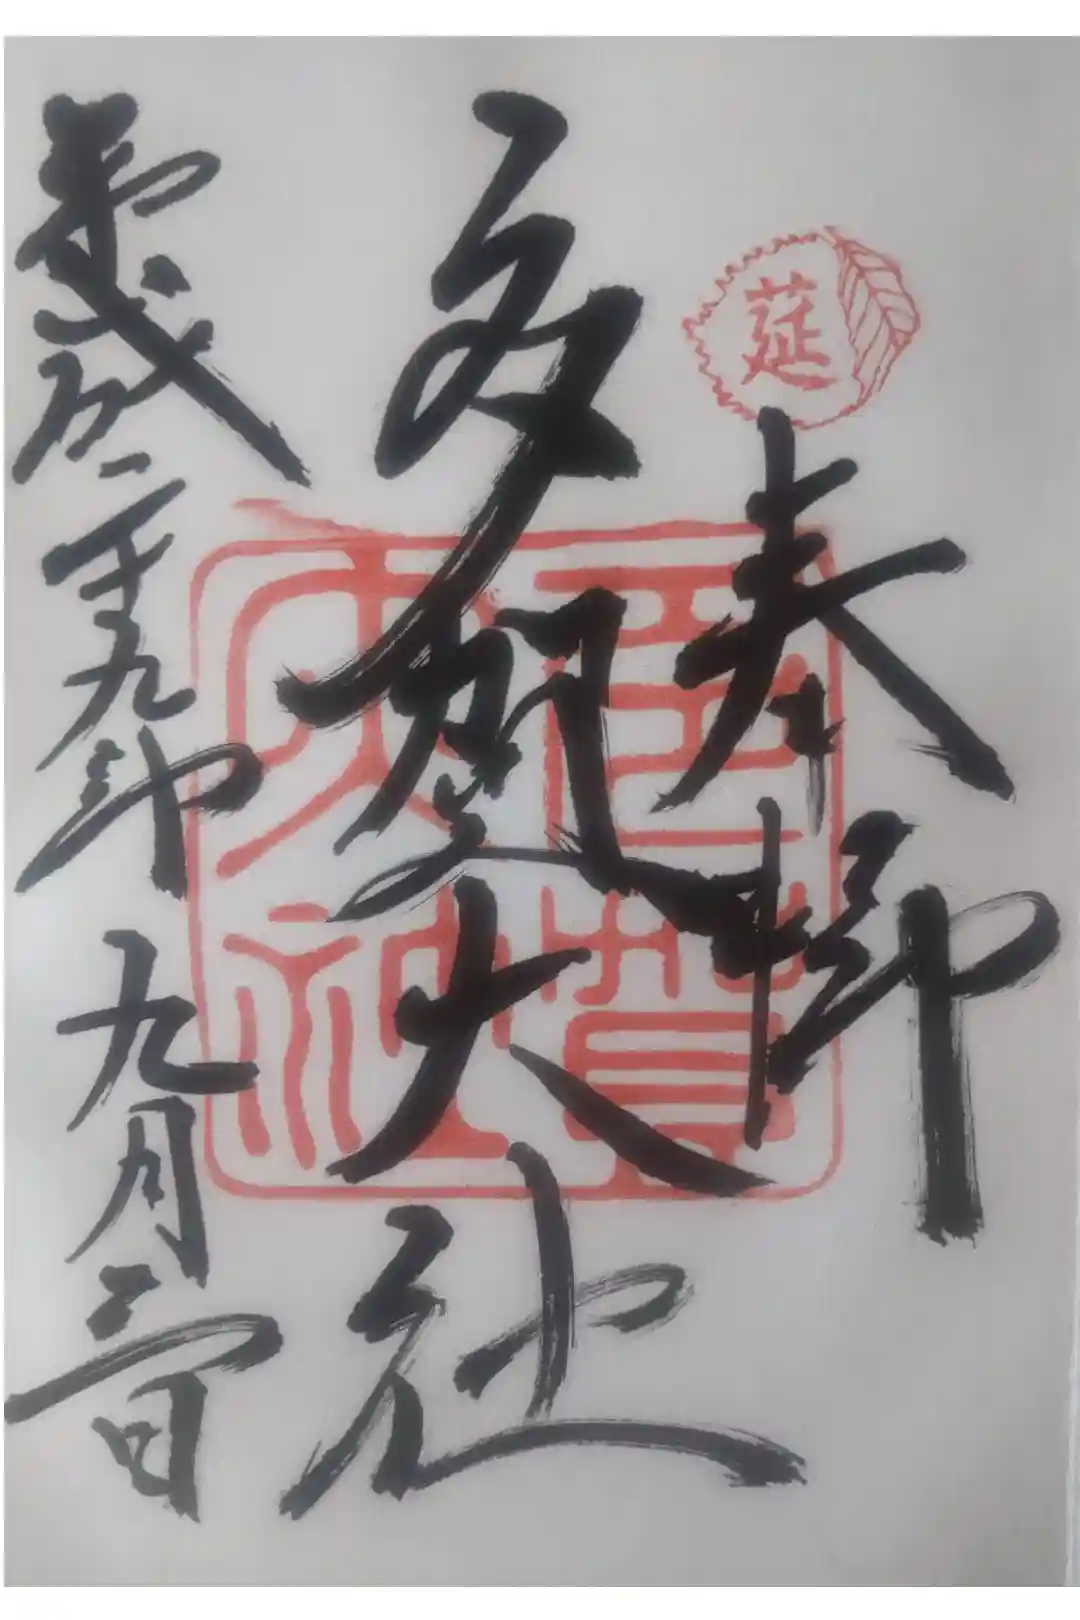 莚
奉拝
多賀大社
平成二十九年九月三日
多賀大社